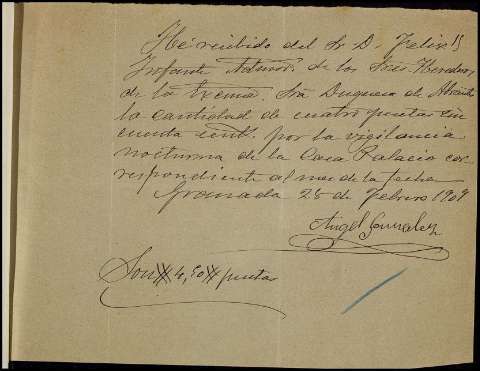 He recibido del Sr D. Felix
Infante de los Sres Herederos
de la Excma. Sra Duquesa de Abrantes
la cantidad de cuatro pesetas cin
cuenta cent.s por la vigilancia
nocturna de la Casa Palacio cor
respondiente al mes de la fecha
Granada 28 de Febrero 1909
Angel Gonzalez
Son # 4,50 # pesetas